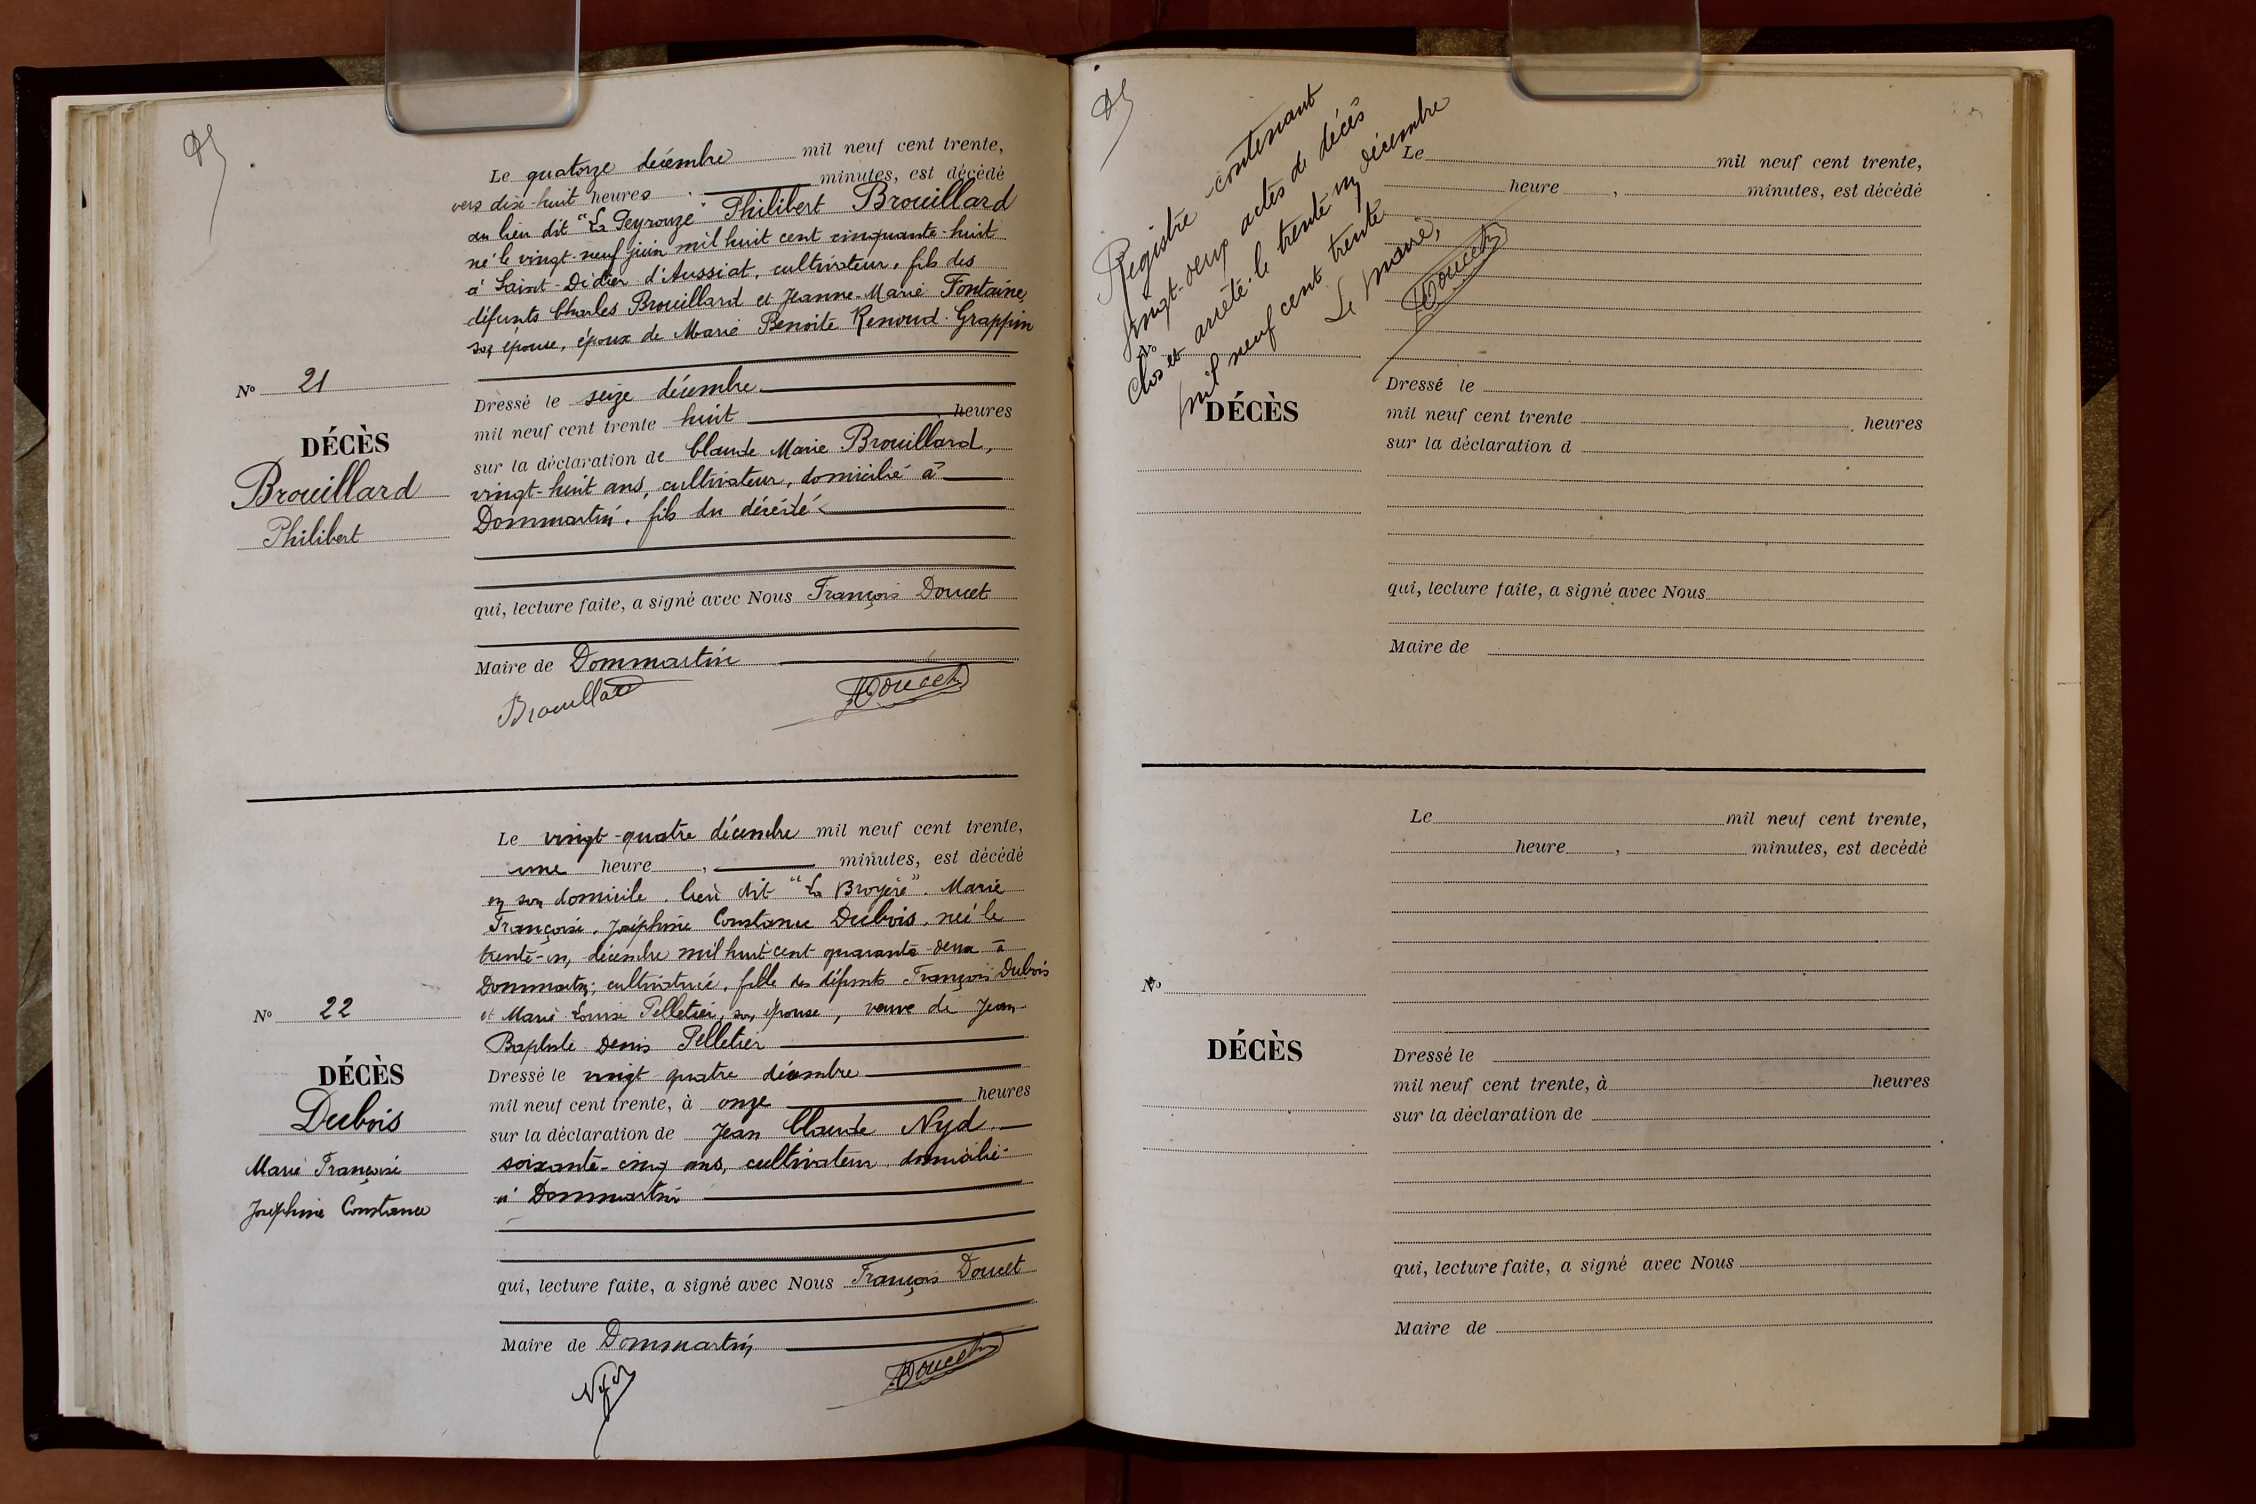 Le quatorze décembre mil neuf cent trente,
vers dix-huit heures minutes, est décédé
au lieu dit "La Peyrouze" Philibert Brouillard
né le vingt-neuf juin mil huit cent cinquante-huit
à Saint-Didier d'Aussiat, cultivateur, fils des
défunts Charles Brouillard et Jeanne-Marie Fontaine,
son épouse, époux de Marie Benoite Renoud-Grappin
N° 21
DÉCÈS
Brouillard
Philibert
Dressé le seize décembre
mil neuf cent trente huit heures
sur la déclaration de Claude Marie Brouillard,
vingt-huit ans, cultivateur, domicilié à
Dommartin, fils du décédé
qui, lecture faite, a signé avec Nous François Doucet
Maire de Dommartin
Brouillard Doucet
Le vingt-quatre décembre mil neuf cent trente,
une heure , minutes, est décédé
en son domicile, lieu dit "La Broyère", Marie
Françoise, Joséphine Constance Dubois, née le
trente-un, décembre mil huit cent quarante-deux à
Dommartin; cultivatrice, fille des défunts François Dubois
et Marie Louise Pelletier, son épouse, veuve de Jean
Baptiste Denis Pelletier
N° 22
DÉCÈS
Dubois
Marie Françoise
Joséphine Constance
Dressé le vingt quatre décembre
mil neuf cent trente, à onze heures
sur la déclaration de Jean Claude Nyd,
soixante-cinq ans, cultivateur, domicilié
à Dommartin
qui, lecture faite, a signé avec Nous François Doucet
Maire de Dommartin
Nyd Doucet
Registre contenant
vingt-deux actes de décès
Clos et arrêté le trente un décembre
mil neuf cent trente
Le Maire,
Doucet
Le mil neuf cent trente,
heure , minutes, est décédé
N°
DÉCÈS
Dressé le
mil neuf cent trente heures
sur la déclaration d
qui, lecture faite, a signé avec Nous
Maire de
Le mil neuf cent trente,
heure , minutes, est decédé
N°
DÉCÈS
Dressé le
mil neuf cent trente, à heures
sur la déclaration de
qui, lecture faite, a signé avec Nous
Maire de